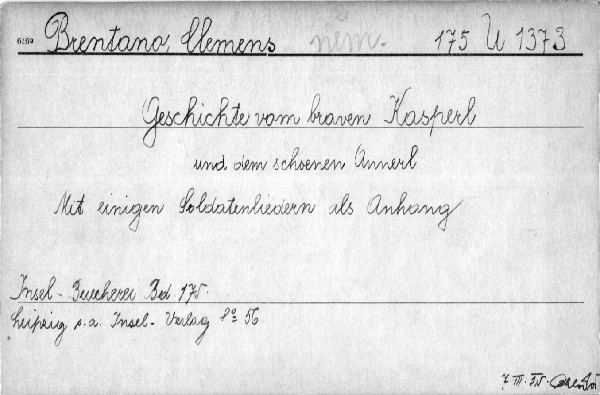 Brentano, Clemens něm. 175 U 1373
Geschichte vom braven Kasperl
und dem schoenen Annerl
Mit einigen Soldatenliedern als Anhang
Insel-Buecherei Bd 175.
Leipzig s.a. Insel-Verlag 8° 56
7. III.